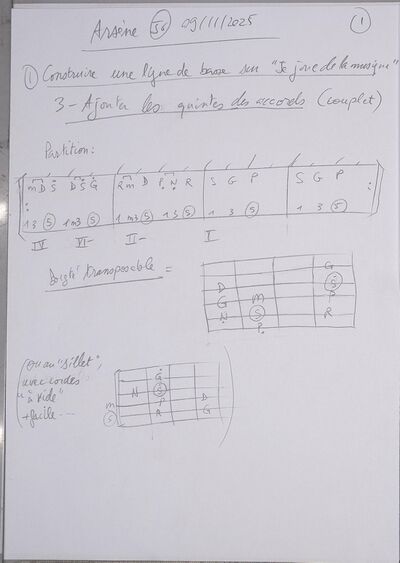 Arsène 36 09/11/2025 1
① Construire une ligne de basse sur "Je joue de la musique"
3 - Ajouter les quintes des accords (couplet)
Partition :
m D S D S G R m D P N R S G P S G P
1 3 5 1 m3 5 1 m3 5 1 3 5 1 3 5 1 3 5
IV VI- II- I
Doigté transposable =
G
D S
G m P
N S R
P
(ou au "sillet",
avec cordes
"à vide"
+ facile ...
G
N S
m P D
S R G